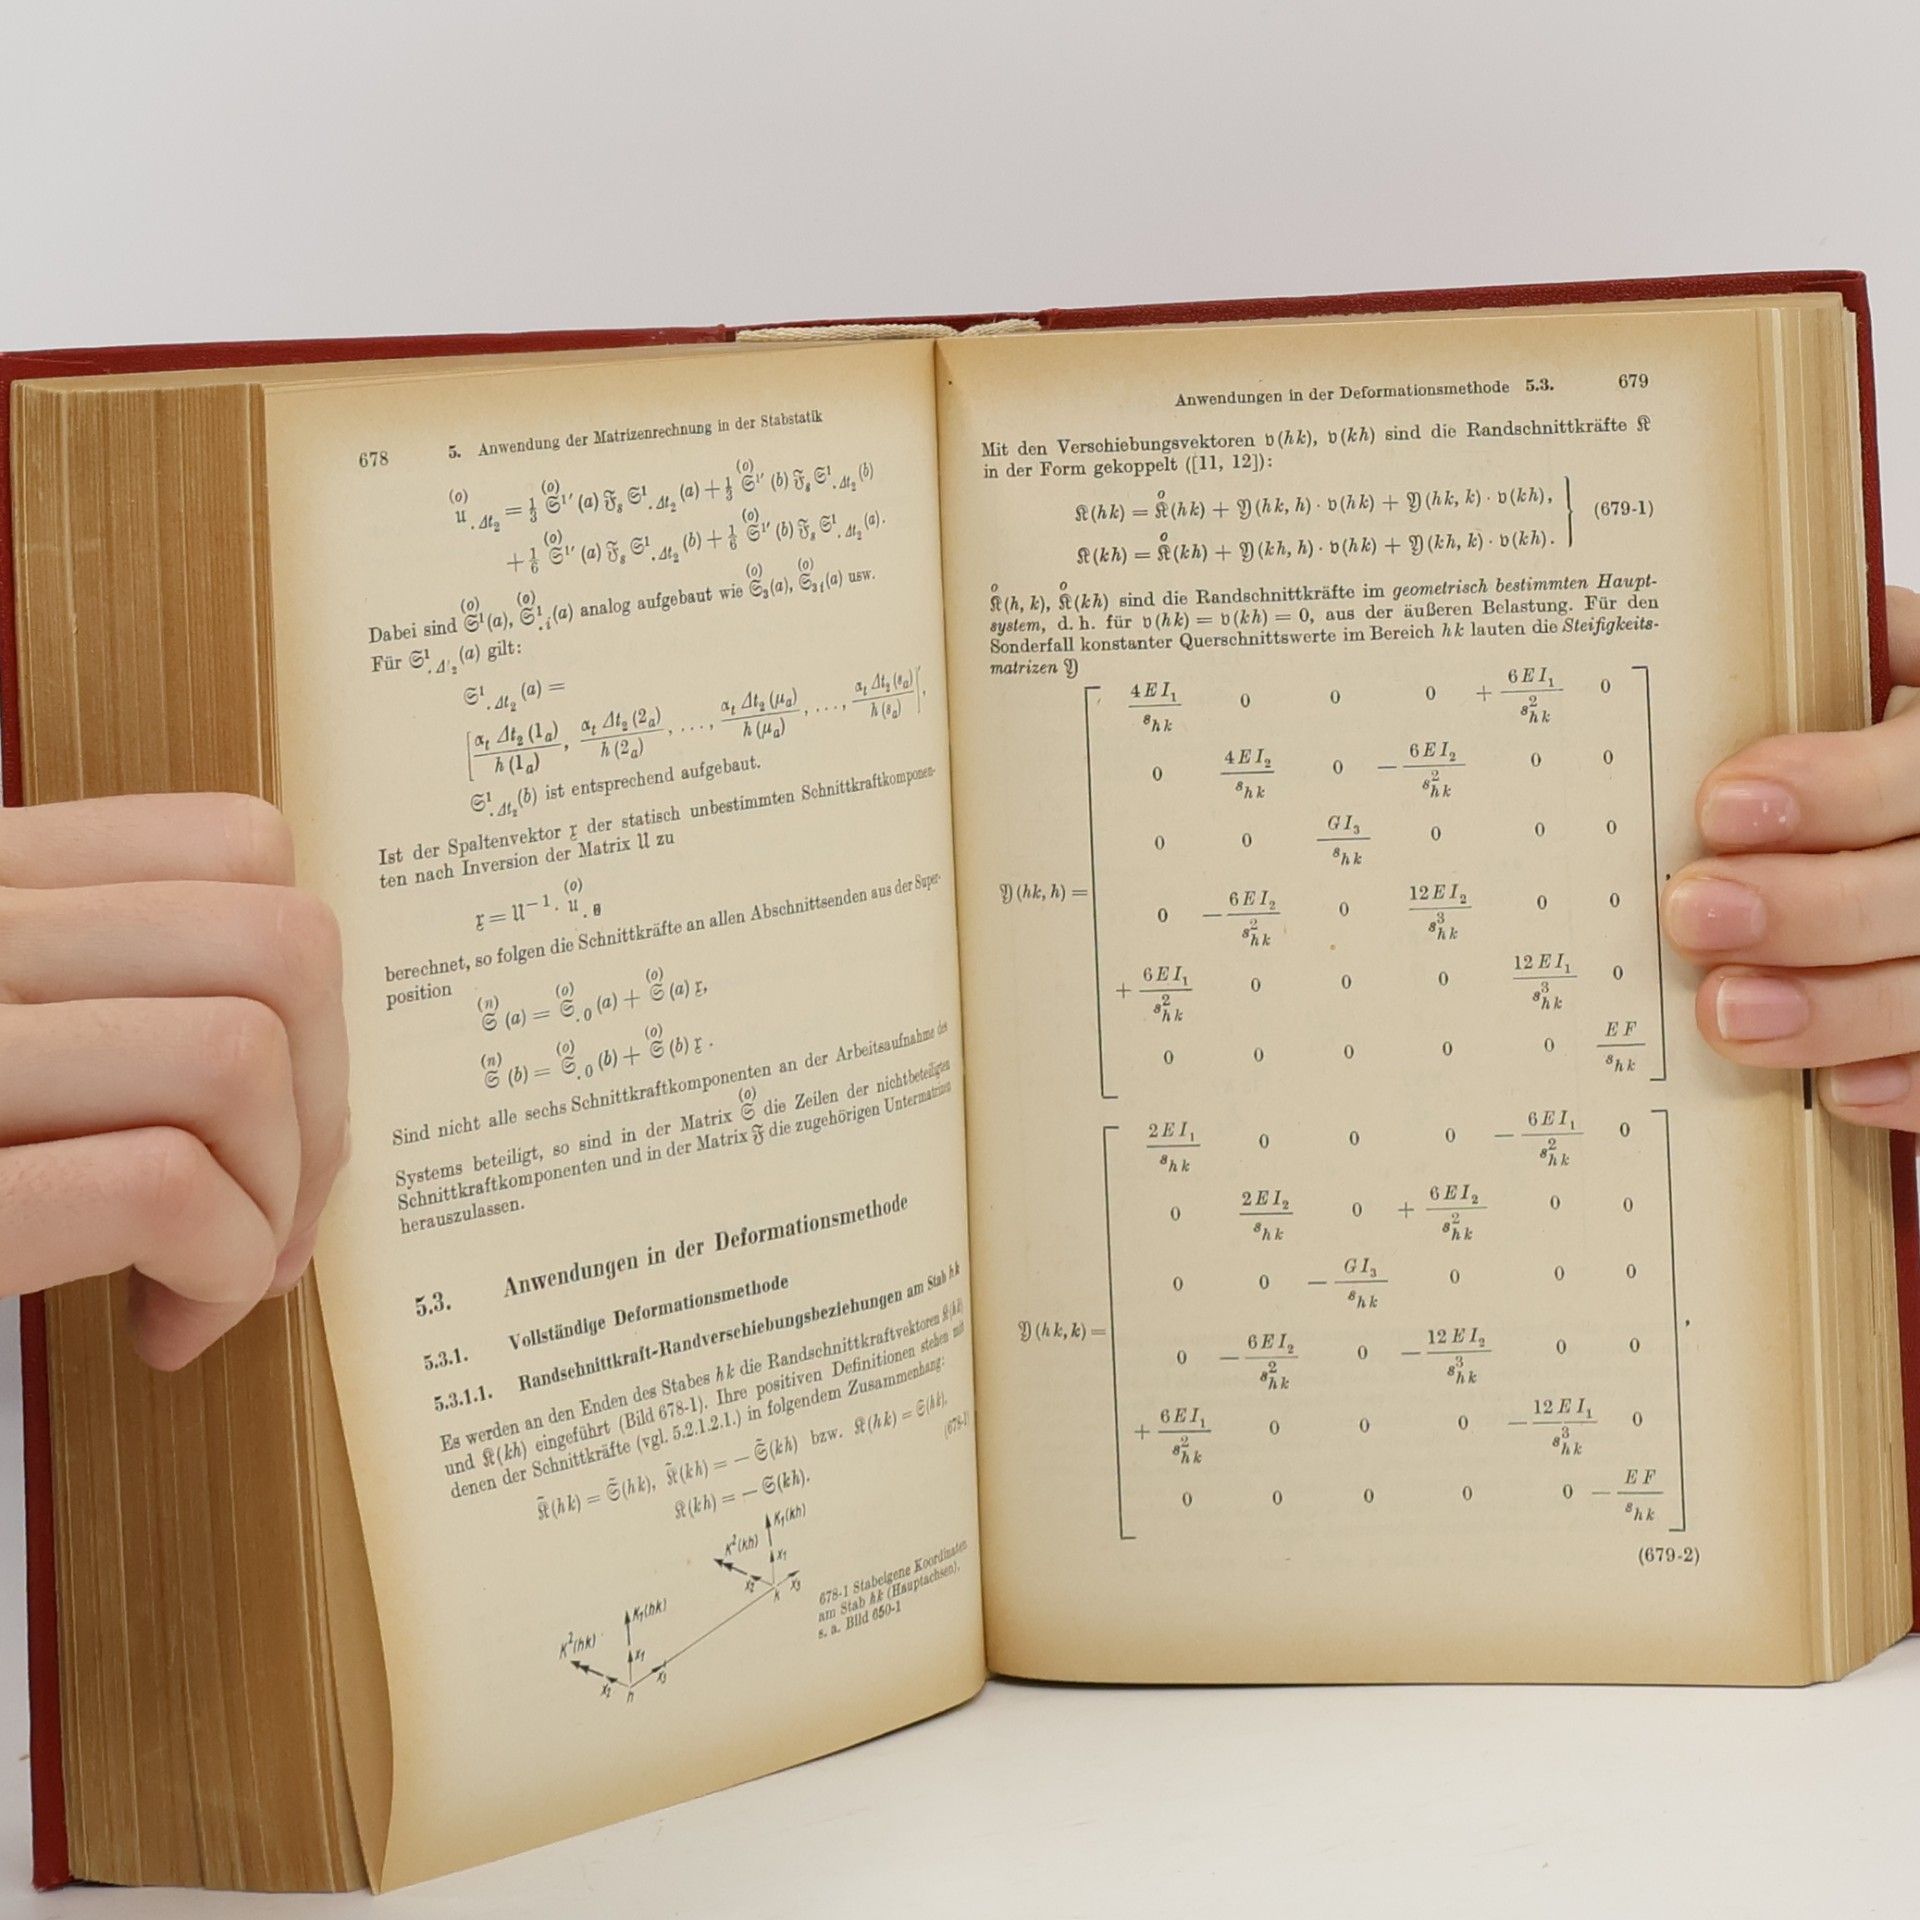 678 5. Anwendung der Matrizenrechnung in der Stabstatik
(o)𝔘.Δt₂ = 1/3 (o)𝔖¹′ (a) 𝔉ₛ 𝔖¹.Δt₂ (a) + 1/3 (o)𝔖¹′ (b) 𝔉ₛ 𝔖¹.Δt₂ (b)
+ 1/6 (o)𝔖¹′ (a) 𝔉ₛ 𝔖¹.Δt₂ (b) + 1/6 (o)𝔖¹′ (b) 𝔉ₛ 𝔖¹.Δt₂ (a).
Dabei sind (o)𝔖¹(a), (o)𝔖¹.i(a) analog aufgebaut wie (o)𝔖₃(a), (o)𝔖₃i(a) usw.
Für 𝔖¹.Δt₂ (a) gilt:
𝔖¹.Δt₂ (a) =
[αt Δt₂ (1a) / h (1a), αt Δt₂ (2a) / h (2a), . . . , αt Δt₂ (μa) / h (μa), . . . , αt Δt₂ (sa) / h (sa)],
𝔖¹.Δt₂(b) ist entsprechend aufgebaut.
Ist der Spaltenvektor 𝔵 der statisch unbestimmten Schnittkraftkomponen-
ten nach Inversion der Matrix 𝔘 zu
𝔵 = 𝔘⁻¹ · (o)𝔘.0
berechnet, so folgen die Schnittkräfte an allen Abschnittsenden aus der Super-
position
(n)𝔖 (a) = (o)𝔖.0 (a) + (o)𝔖 (a) 𝔵,
(n)𝔖 (b) = (o)𝔖.0 (b) + (o)𝔖 (b) 𝔵 .
Sind nicht alle sechs Schnittkraftkomponenten an der Arbeitsaufnahme des
Systems beteiligt, so sind in der Matrix (o)𝔖 die Zeilen der nichtbeteiligten
Schnittkraftkomponenten und in der Matrix 𝔉 die zugehörigen Untermatrizen
herauszulassen.
5.3. Anwendungen in der Deformationsmethode
5.3.1. Vollständige Deformationsmethode
5.3.1.1. Randschnittkraft-Randverschiebungsbeziehungen am Stab hk
Es werden an den Enden des Stabes hk die Randschnittkraftvektoren 𝔎(hk)
und 𝔎(kh) eingeführt (Bild 678-1). Ihre positiven Definitionen stehen mit
denen der Schnittkräfte (vgl. 5.2.1.2.1.) in folgendem Zusammenhang:
𝔎̃(hk) = 𝔖̃(hk), 𝔎̃(kh) = − 𝔖̃(kh) bzw. 𝔎(hk) = 𝔖(hk),
𝔎(kh) = − 𝔖(kh). (678-1)
K₁(kh)
K²(kh)
x₁
x₂ k x₃
K₁(hk)
K²(hk)
x₁
x₂ h x₃
678-1 Stabeigene Koordinaten
am Stab hk (Hauptachsen),
s. a. Bild 650-1
Anwendungen in der Deformationsmethode 5.3. 679
Mit den Verschiebungsvektoren 𝔳(hk), 𝔳(kh) sind die Randschnittkräfte 𝔎
in der Form gekoppelt ([11, 12]):
𝔎(hk) = 𝔎̊(hk) + 𝔜(hk, h) · 𝔳(hk) + 𝔜(hk, k) · 𝔳(kh),
(679-1)
𝔎(kh) = 𝔎̊(kh) + 𝔜(kh, h) · 𝔳(hk) + 𝔜(kh, k) · 𝔳(kh).
𝔎̊(h, k), 𝔎̊(kh) sind die Randschnittkräfte im geometrisch bestimmten Haupt-
system, d. h. für 𝔳(hk) = 𝔳(kh) = 0, aus der äußeren Belastung. Für den
Sonderfall konstanter Querschnittswerte im Bereich hk lauten die Steifigkeits-
matrizen 𝔜
4EI₁/s_hk 0 0 0 + 6EI₁/s²_hk 0
0 4EI₂/s_hk 0 − 6EI₂/s²_hk 0 0
0 0 GI₃/s_hk 0 0 0
𝔜(hk, h) = 0 − 6EI₂/s²_hk 0 12EI₂/s³_hk 0 0 ,
+ 6EI₁/s²_hk 0 0 0 12EI₁/s³_hk 0
0 0 0 0 0 EF/s_hk
2EI₁/s_hk 0 0 0 − 6EI₁/s²_hk 0
0 2EI₂/s_hk 0 + 6EI₂/s²_hk 0 0
0 0 − GI₃/s_hk 0 0 0
𝔜(hk, k) = 0 − 6EI₂/s²_hk 0 − 12EI₂/s³_hk 0 0 ,
+ 6EI₁/s²_hk 0 0 0 − 12EI₁/s³_hk 0
0 0 0 0 0 − EF/s_hk
(679-2)